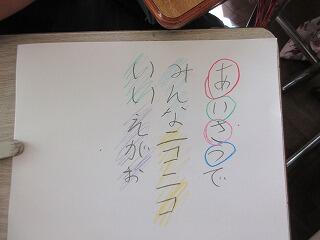 あいさつで
みんなニコニコ
いいえがお